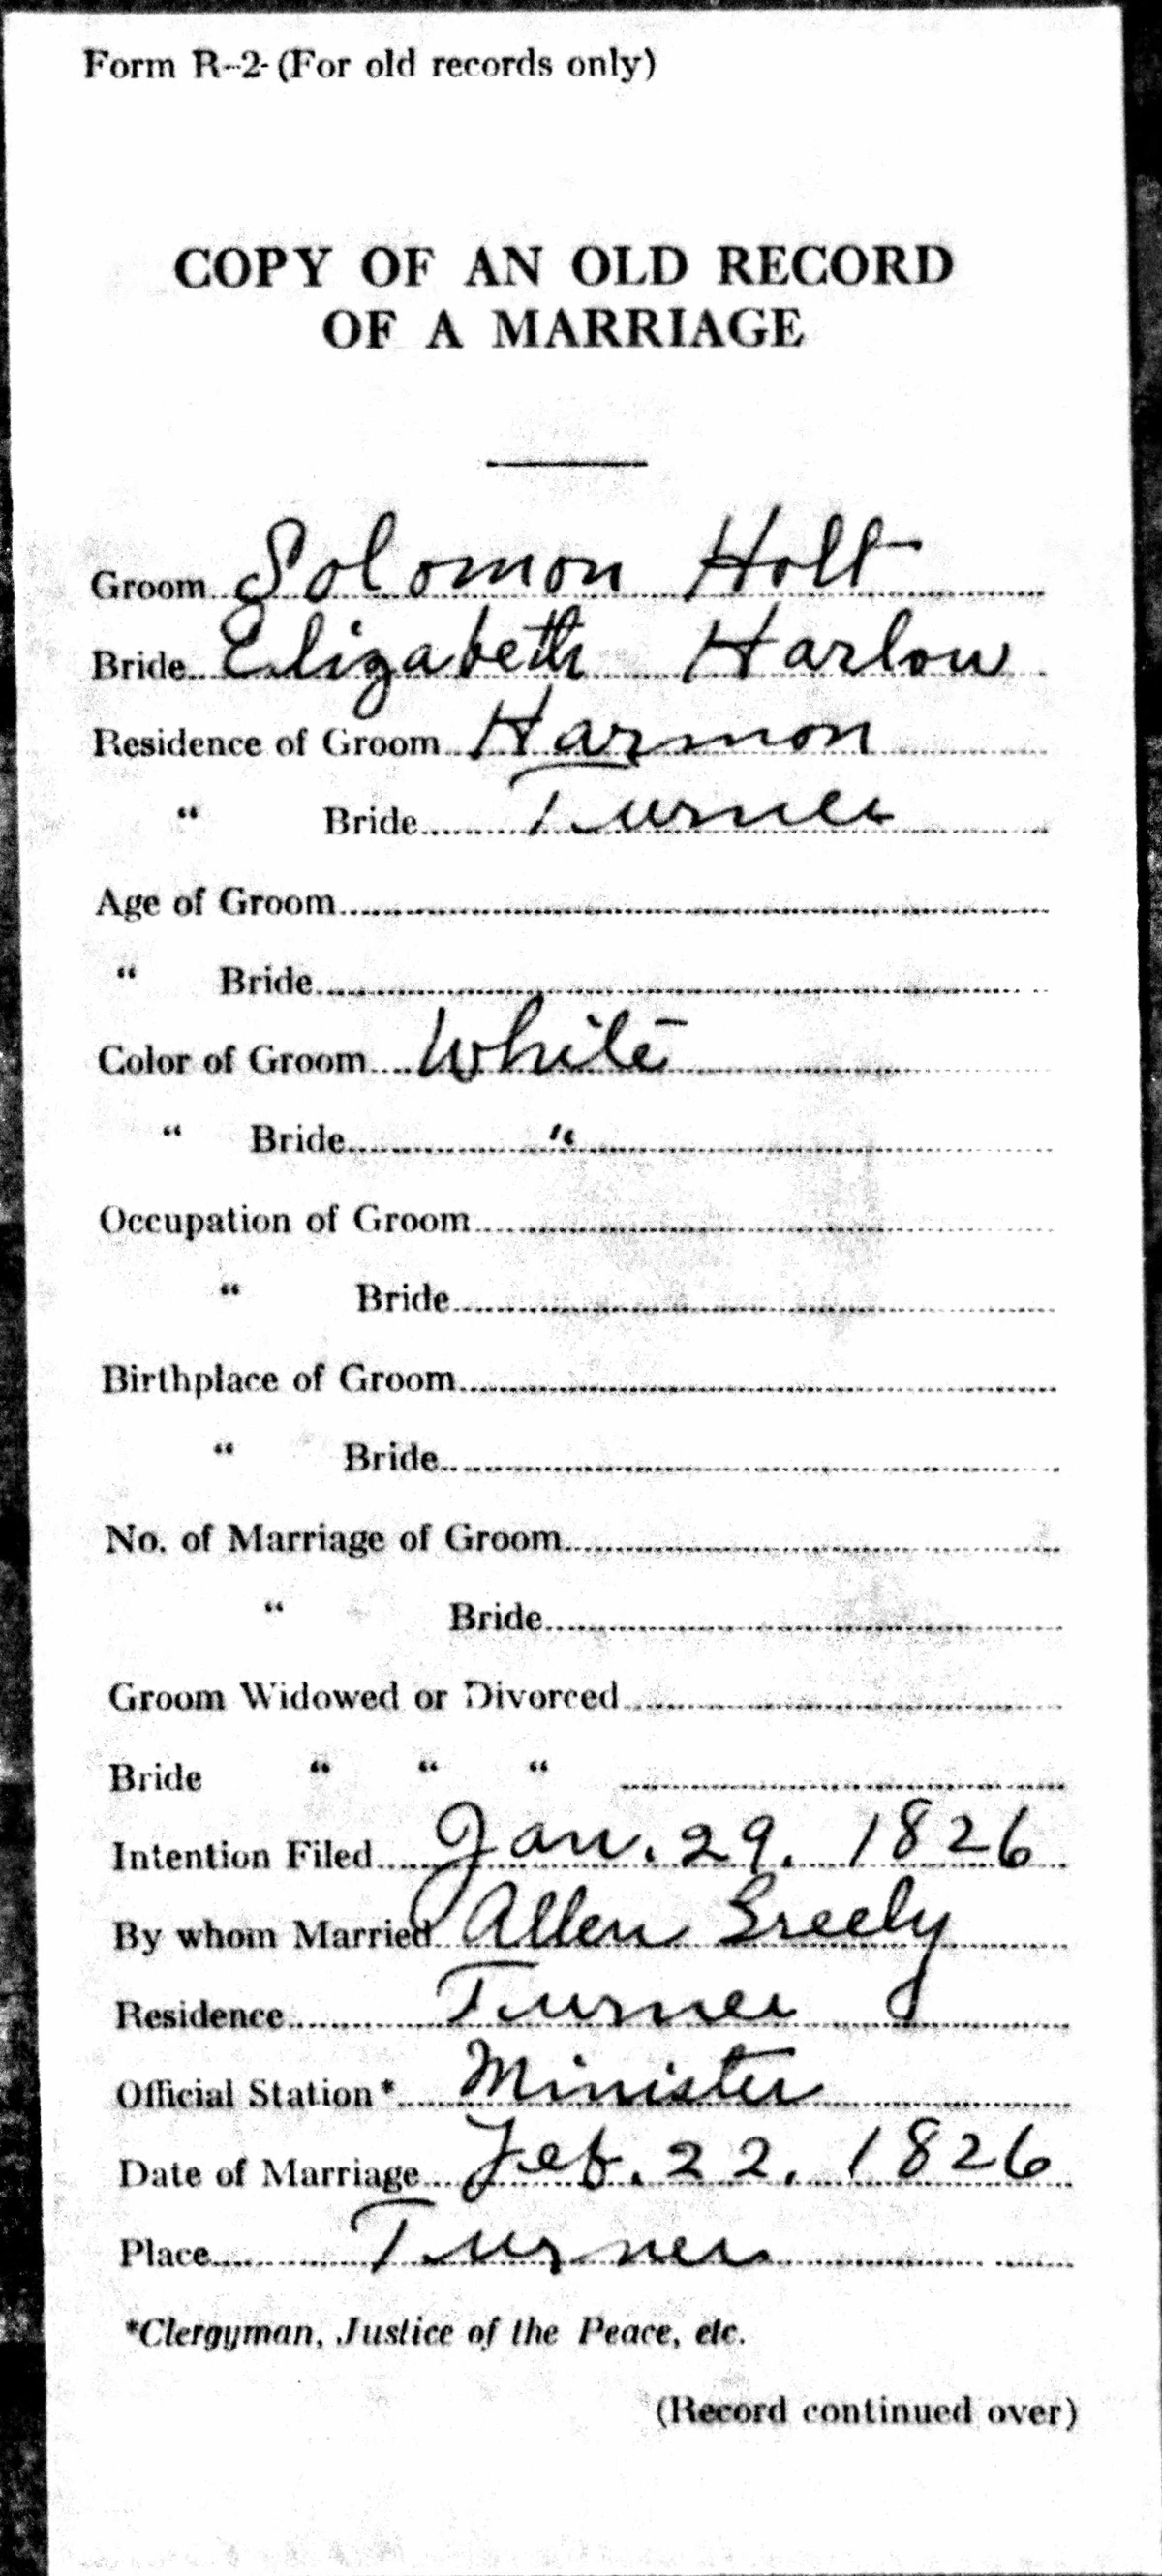 Form R-2- (For old records only)
COPY OF AN OLD RECORD
OF A MARRIAGE
Groom Solomon Holt
Bride Elizabeth Harlow
Residence of Groom Harmon
" Bride Turner
Age of Groom
" Bride
Color of Groom White
" Bride "
Occupation of Groom
" Bride
Birthplace of Groom
" Bride
No. of Marriage of Groom
" Bride
Groom Widowed or Divorced
Bride " " "
Intention Filed Jan. 29. 1826
By whom Married Allen Greely
Residence Turner
Official Station* Minister
Date of Marriage Feb. 22. 1826
Place Turner
*Clergyman, Justice of the Peace, etc.
(Record continued over)